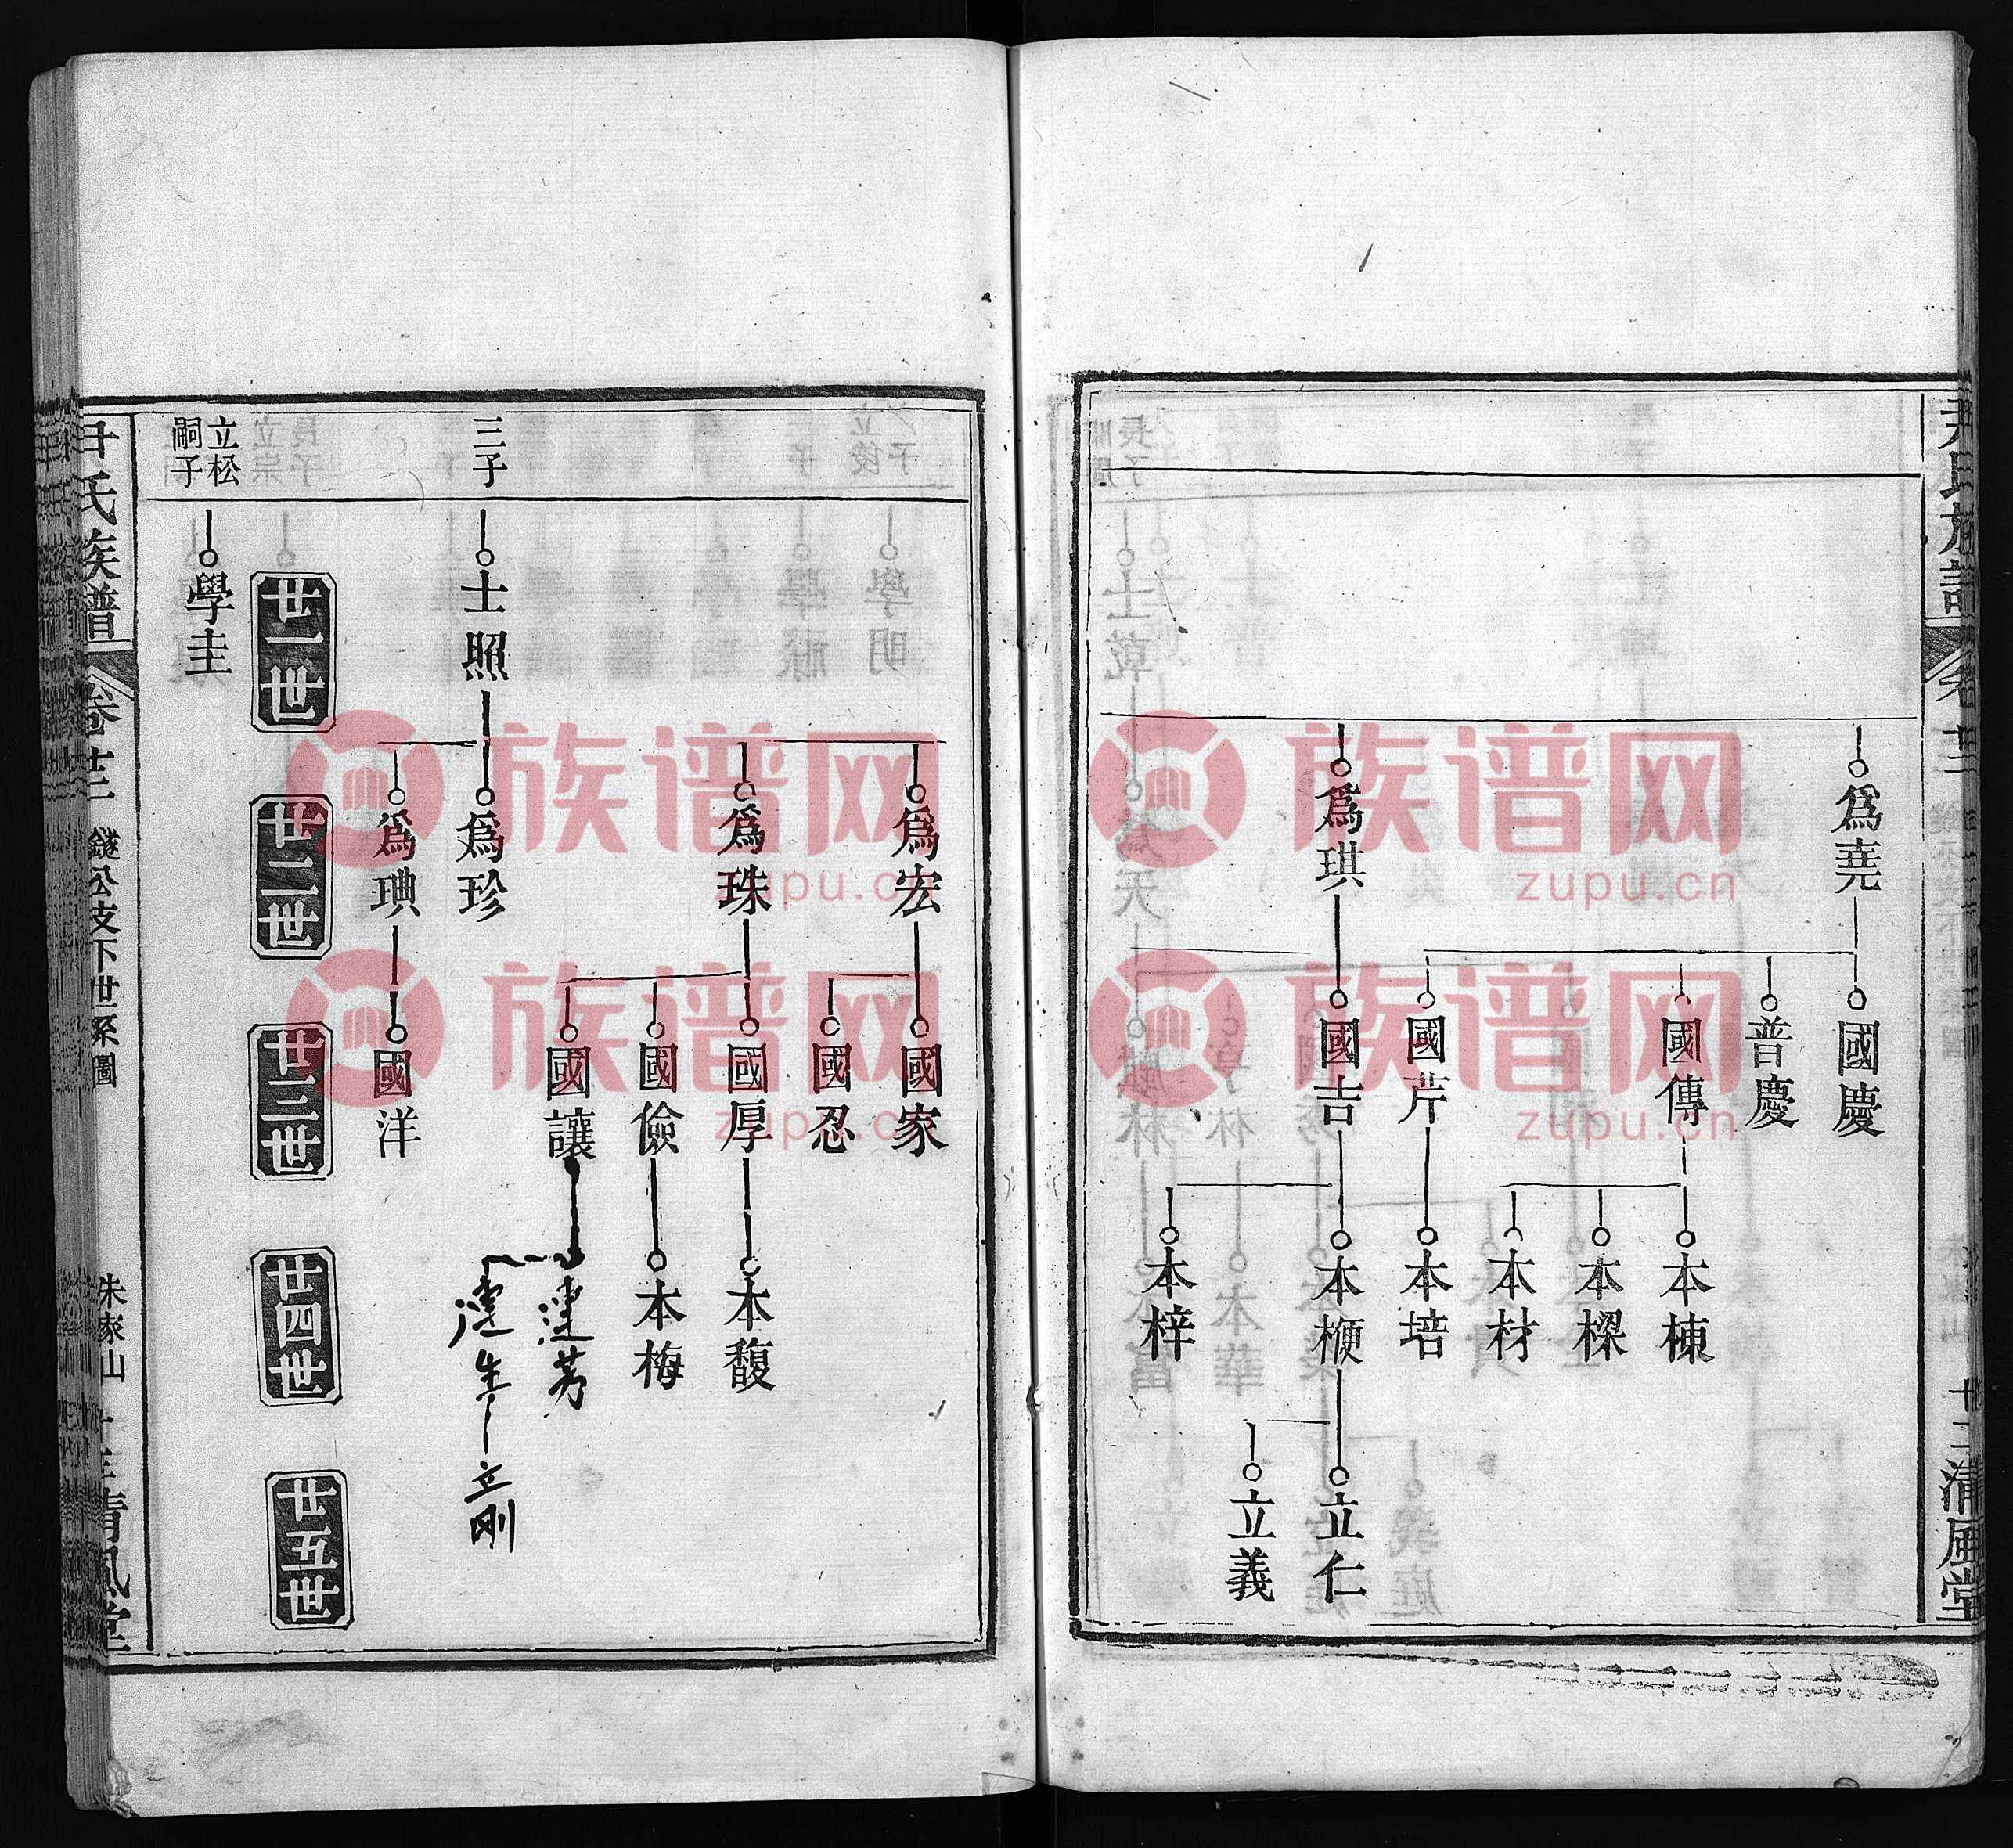 尹氏族譜
卷廿三
十二
清風堂
爲堯
國慶
普慶
國傳
本棟
本樑
本材
國芹
本培
爲琪
國吉
本楩
立仁
立義
本梓
爲宏
國家
國忍
爲珠
國厚
本馥
國儉
本梅
國讓
三子
士照
爲珍
爲琠
國洋
立剛
廿一世
廿二世
廿三世
廿四世
廿五世
立松
嗣子
學圭
尹氏族譜
卷廿三
鐩公支下世系圖
朱家山
十三
清風堂
族谱网
zupu.cn
族谱网
zupu.cn
族谱网
zupu.cn
族谱网
zupu.cn